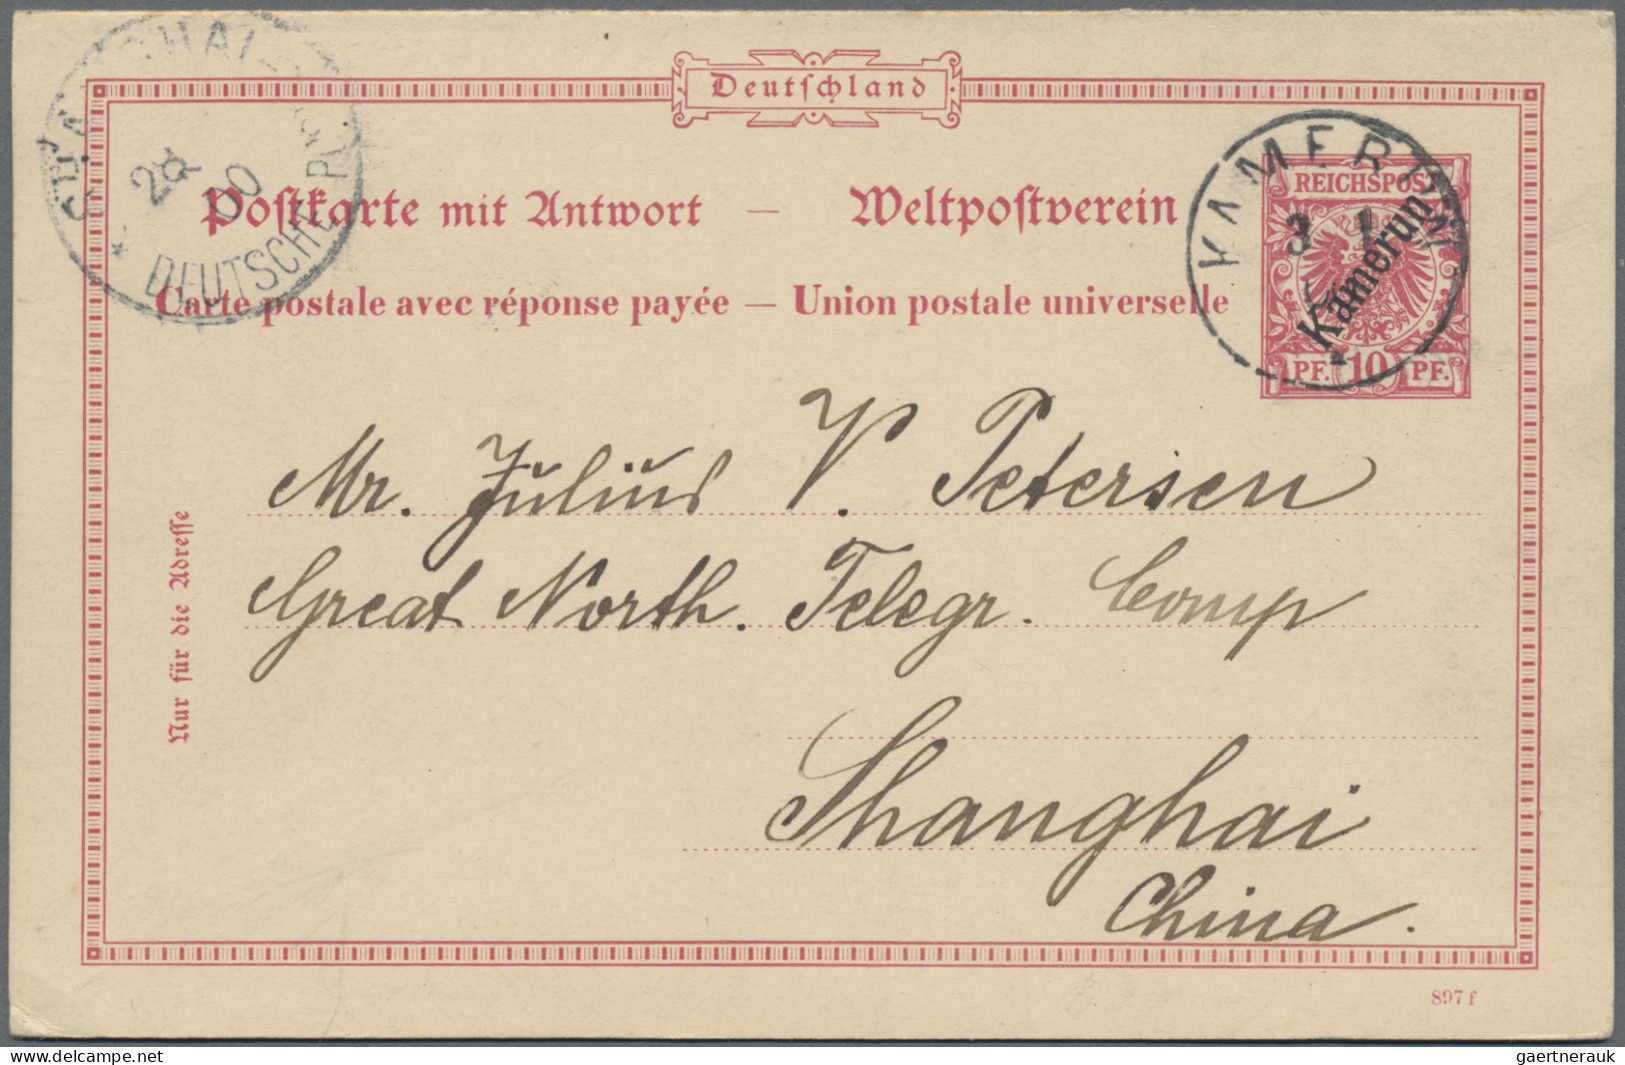 Deutschland
SHANGHAI
DEUTSCHE
00
Postkarte mit Antwort — Weltpostverein
Carte postale avec réponse payée — Union postale universelle
KAMERUN
3 1
REICHSPOST
Kamerun
PF. 10 PF.
Mr. Julius V. Petersen
Great North. Telegr. Comp
Shanghai
China.
Nur für die Adresse
897 f
www.delcampe.net
gaertnerauk